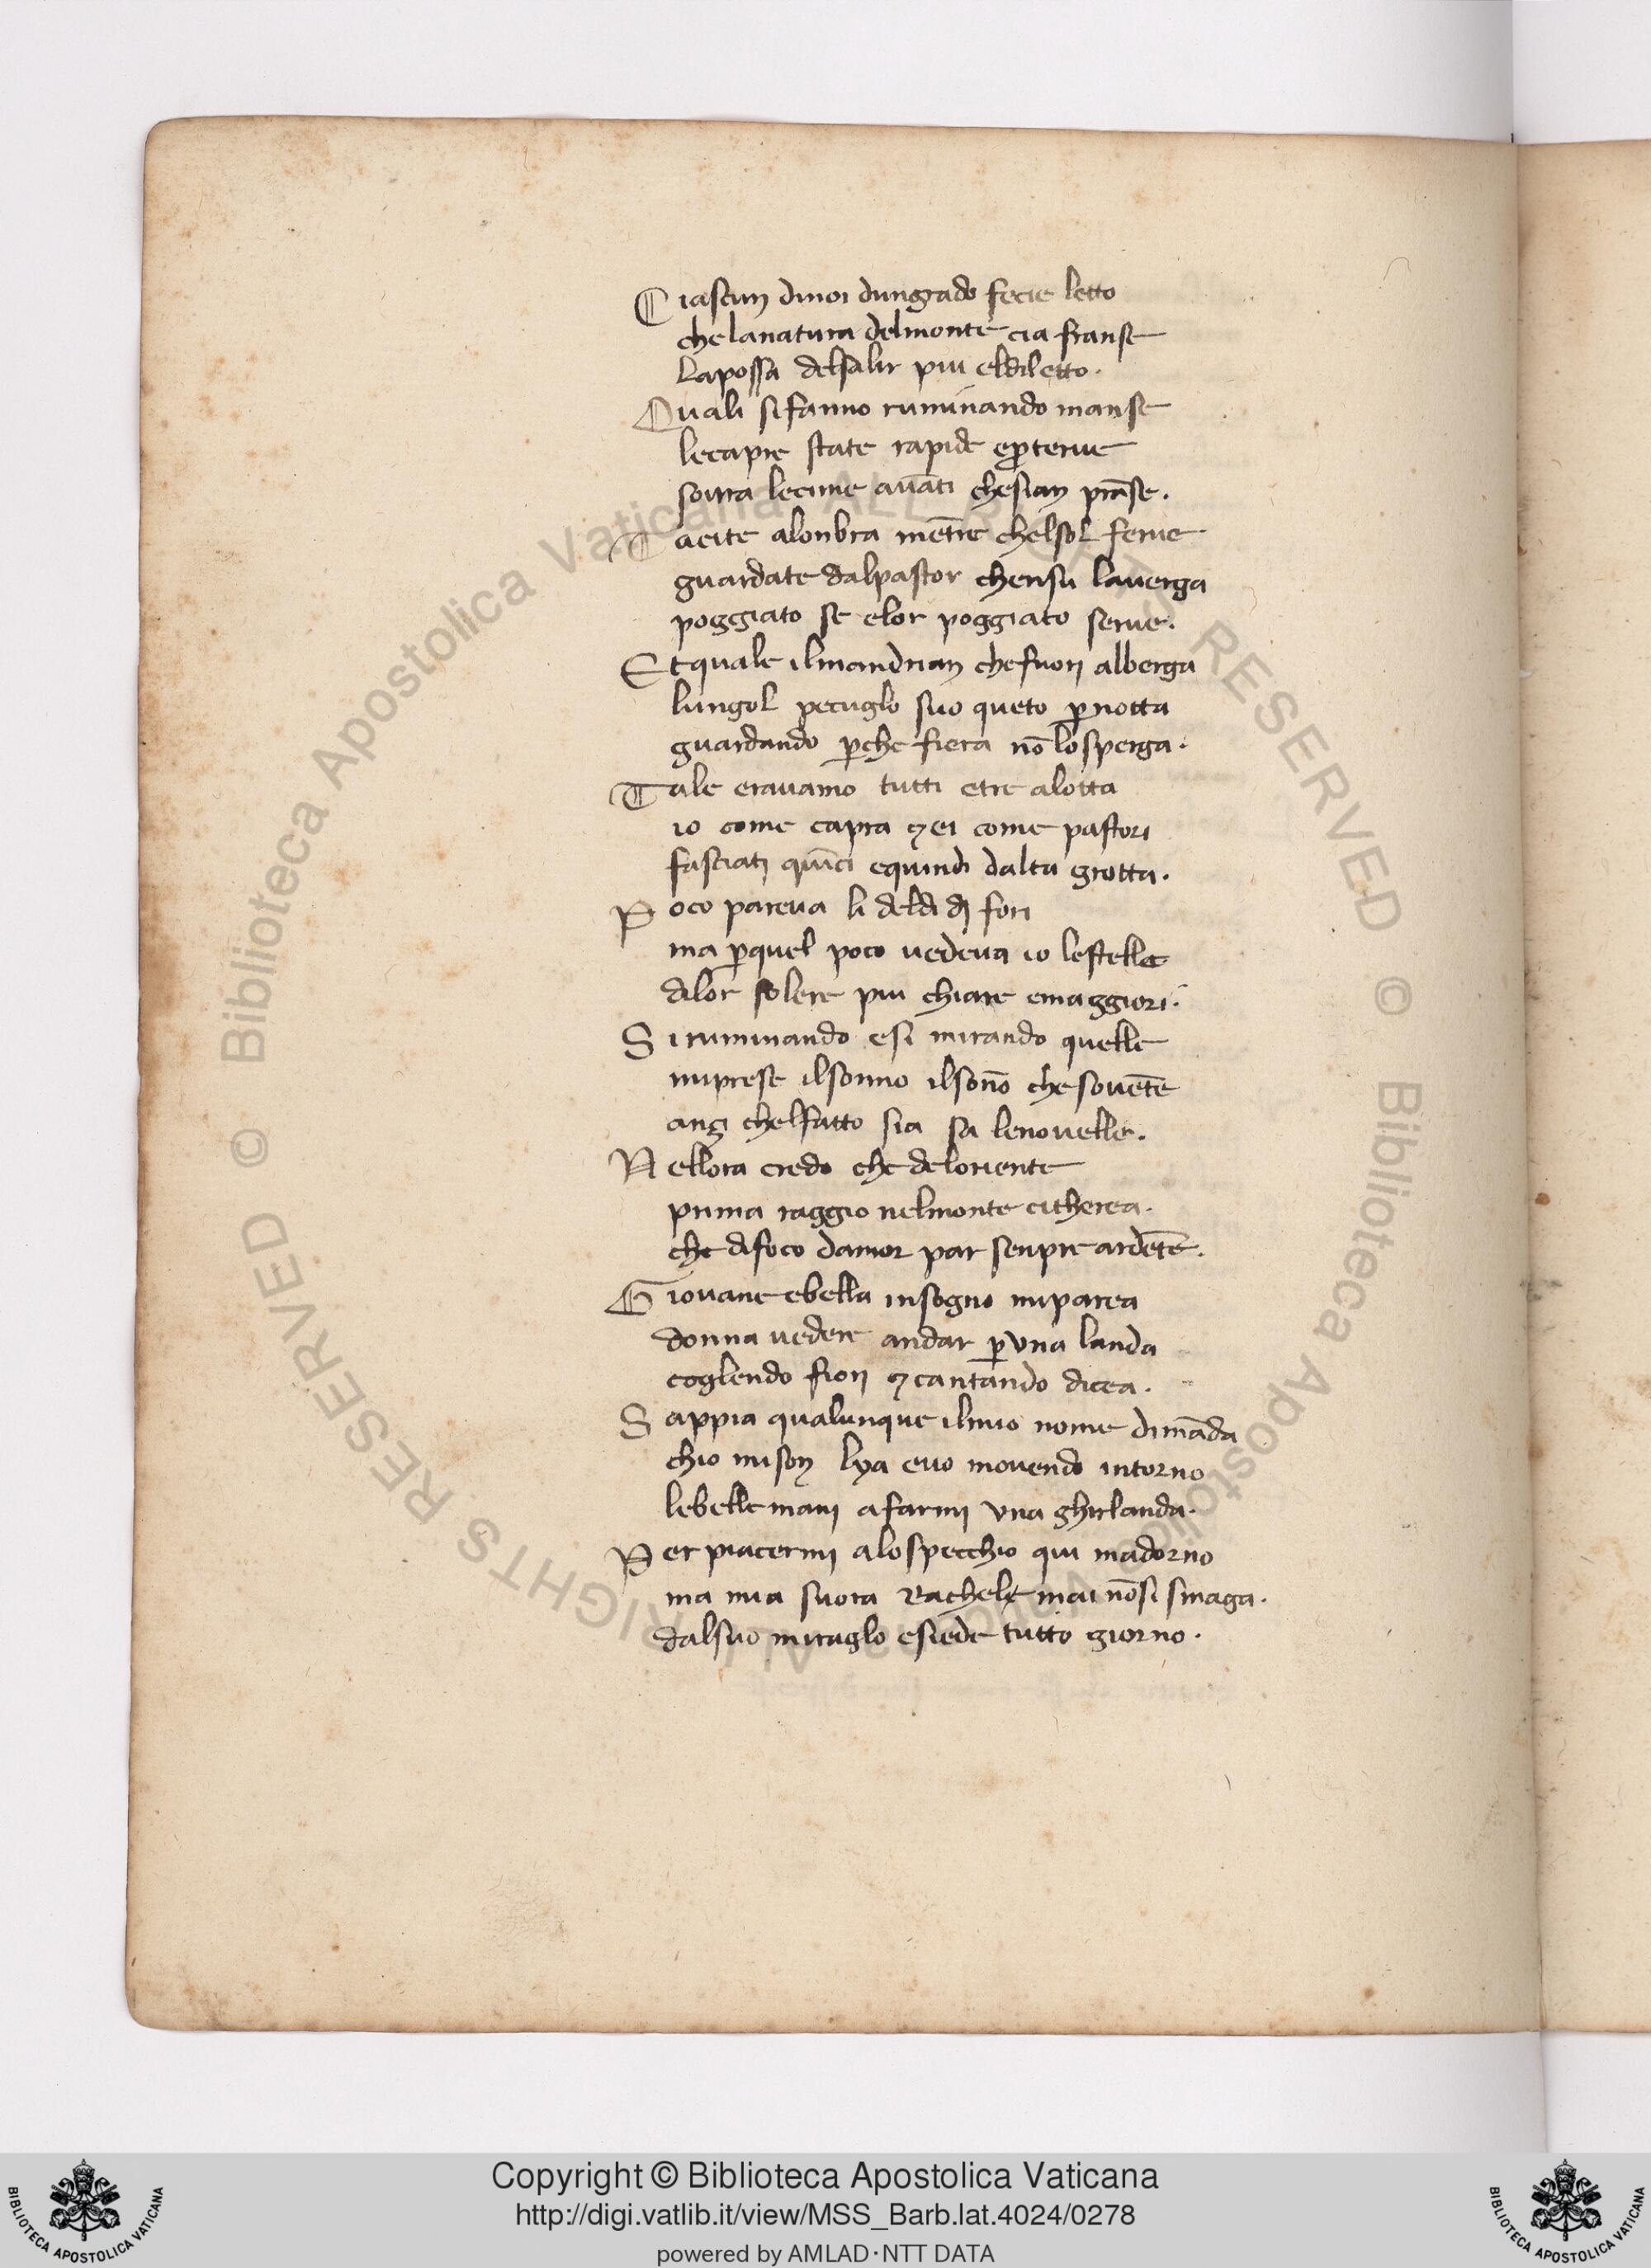 Ciascun dinoi dungrado fecie letto
che lanatura delmonte cia franse
Lapossa delsalir piu eldiletto.
Quali sifanno ruminando manse
lecapre state rapide eꝓterue
soura lecime auāti chesian prāse.
Tacite alonbra mētre chelsol ferue
guardate dalpastor chensu lauerga
poggiato se elor poggiato serue.
Et quale ilmandrian chefuori alberga
lungol pecuglo suo queto ꝑnotta
guardando ꝑche fiera nō losperga.
Tale erauamo tutti etre alotta
io come capra ⁊ ei come pastori
fasciati quīci equindi dalta grotta.
Poco pareua li deldi di fori
ma ꝑquel poco uedeua io lestelle
dilor solere piu chiare emaggiori.
Si ruminando esi mirando quelle
miprese ilsonno ilsōno che souēte
anzi chelfatto sia sa lenouelle.
Nellora credo che deloriente
prima raggio nelmonte citherea.
che difoco damor par senpre ardēte.
Giouane ebella insogno miparea
donna uedere andar ꝑ una landa
coglendo fiori ⁊ cantando dicea.
Sappia qualunque ilmio nome dimāda
chio mison lya euo mouendo intorno
lebelle mani afarmi una ghirlanda.
Per piacermi alospecchio qui madorno
ma mia suora Rachele mai nōsi smaga.
dalsuo miraglo esiede tutto giorno.
© Biblioteca Apostolica Vaticana ALL RIGHTS RESERVED
© Biblioteca Apostolica Vaticana ALL RIGHTS RESERVED
BIBLIOTECA APOSTOLICA VATICANA
Copyright © Biblioteca Apostolica Vaticana
http://digi.vatlib.it/view/MSS_Barb.lat.4024/0278
powered by AMLAD·NTT DATA
BIBLIOTECA APOSTOLICA VATICANA